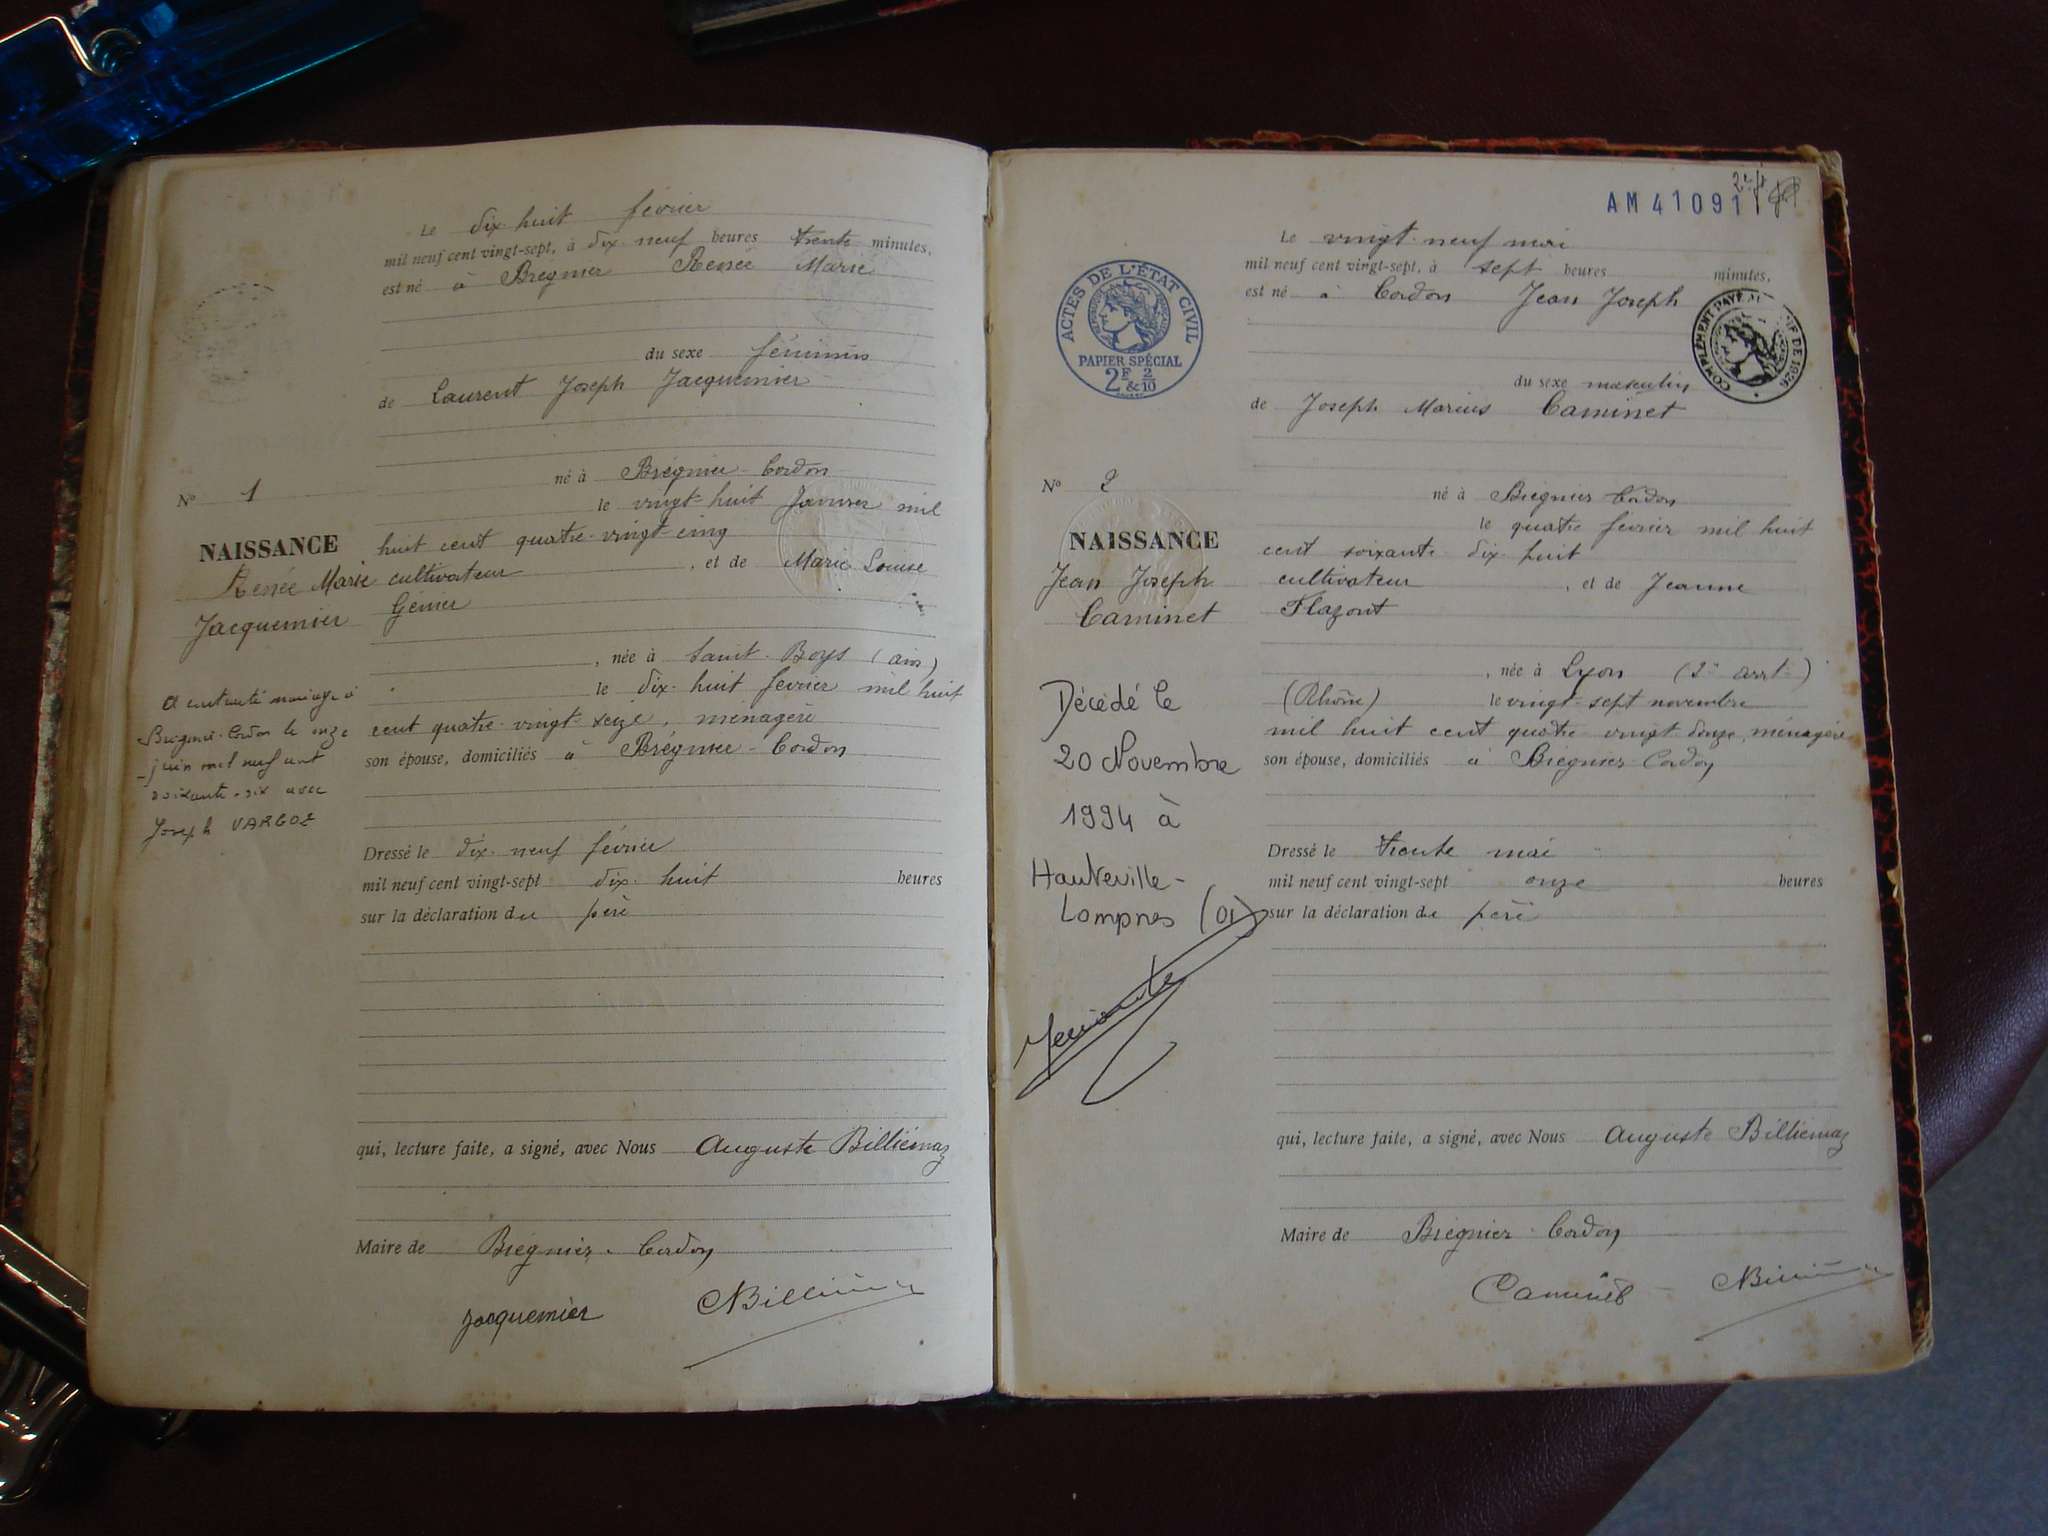 Le dix-huit février
mil neuf cent vingt-sept, à dix-neuf heures trente minutes,
est né à Brégnier Renée Marie
du sexe féminin
de Laurent Joseph Jacquemier
né à Brégnier-Cordon
le vingt-huit Janvier mil
huit cent quatre-vingt-cinq
cultivateur , et de Marie Louise
Génier
, née à Saint-Boys (ain)
le dix-huit février mil huit
cent quatre-vingt-seize, ménagère
son épouse, domiciliés à Brégnier-Cordon
Dressé le dix-neuf février
mil neuf cent vingt-sept dix-huit heures
sur la déclaration du père
qui, lecture faite, a signé, avec Nous Auguste Billiémaz
Maire de Brégnier-Cordon
Jacquemier
N° 1
NAISSANCE
Renée Marie
Jacquemier
A contracté mariage à
Brégnier-Cordon le onze
juin mil neuf cent
soixante-six avec
Joseph VARGOZ
AM 41091
ACTES DE L'ÉTAT CIVIL
PAPIER SPÉCIAL
2F & 2/10
COMPLÉMENT PAYÉ DE 1926
Le vingt-neuf mai
mil neuf cent vingt-sept, à sept heures minutes,
est né à Cordon Jean Joseph
du sexe masculin
de Joseph Marius Caminet
né à Brégnier Cordon
le quatre février mil huit
cent soixante-dix-huit
cultivateur , et de Jeanne
Flazout
, née à Lyon (2e arrt)
(Rhône) le vingt-sept novembre
mil huit cent quatre-vingt-douze, ménagère
son épouse, domiciliés à Brégnier-Cordon
Dressé le trente mai
mil neuf cent vingt-sept onze heures
sur la déclaration du père
qui, lecture faite, a signé, avec Nous Auguste Billiémaz
Maire de Brégnier-Cordon
Caminet
N° 2
NAISSANCE
Jean Joseph
Caminet
Décédé le
20 Novembre
1994 à
Hauteville-
Lompnes (01)